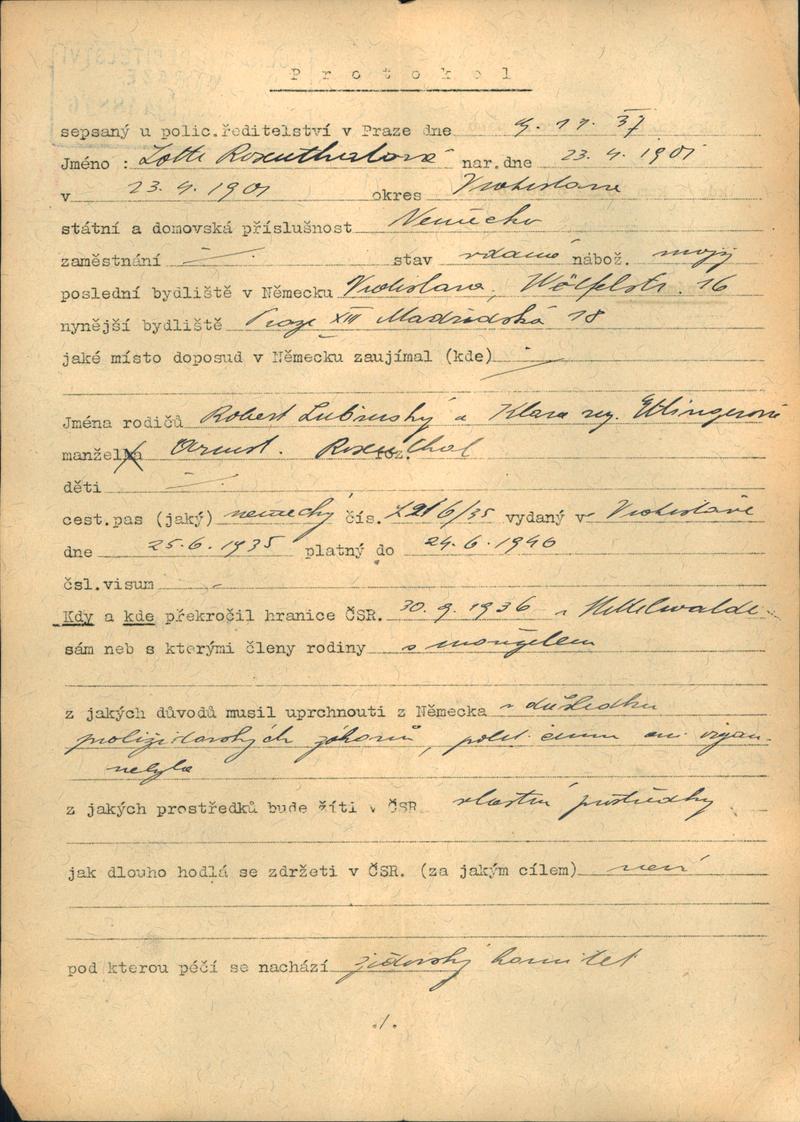 P r o t o k o l
sepsaný u polic.ředitelství v Praze dne 9. 11. 37
Jméno : Lotte Rosenthalová nar.dne 23. 4. 1901
v 23. 4. 1901 okres Vratislava
státní a domovská příslušnost Německo
zaměstnání ./. stav vdaná nábož. mojž
poslední bydliště v Německu Vratislava, Wölfelstr. 16
nynější bydliště Praze XIII Madridská 18
jaké místo doposud v Německu zaujímal (kde) ./.
Jména rodičů Robert Lubinský a Klara roz. Ettingerová
manželka Arnost. Rosenthal roz.
děti ./.
cest.pas (jaký) německý čís. /35 vydaný v Vratislavě
dne 25.6.1935 platný do 24.6.1940
čsl.visum
Kdy a kde překročil hranice ČSR. 30.9.1936 v Mittelwalde
sám neb s kterými členy rodiny s manželem
z jakých důvodů musil uprchnouti z Německa v důsledku
protižidovských zákonů, polit. činna ani organ.
nebyla
z jakých prostředků bude žíti v ČSR vlastní prostředky
jak dlouho hodlá se zdržeti v ČSR. (za jakým cílem) není
pod kterou péčí se nachází židovský komitét
./.